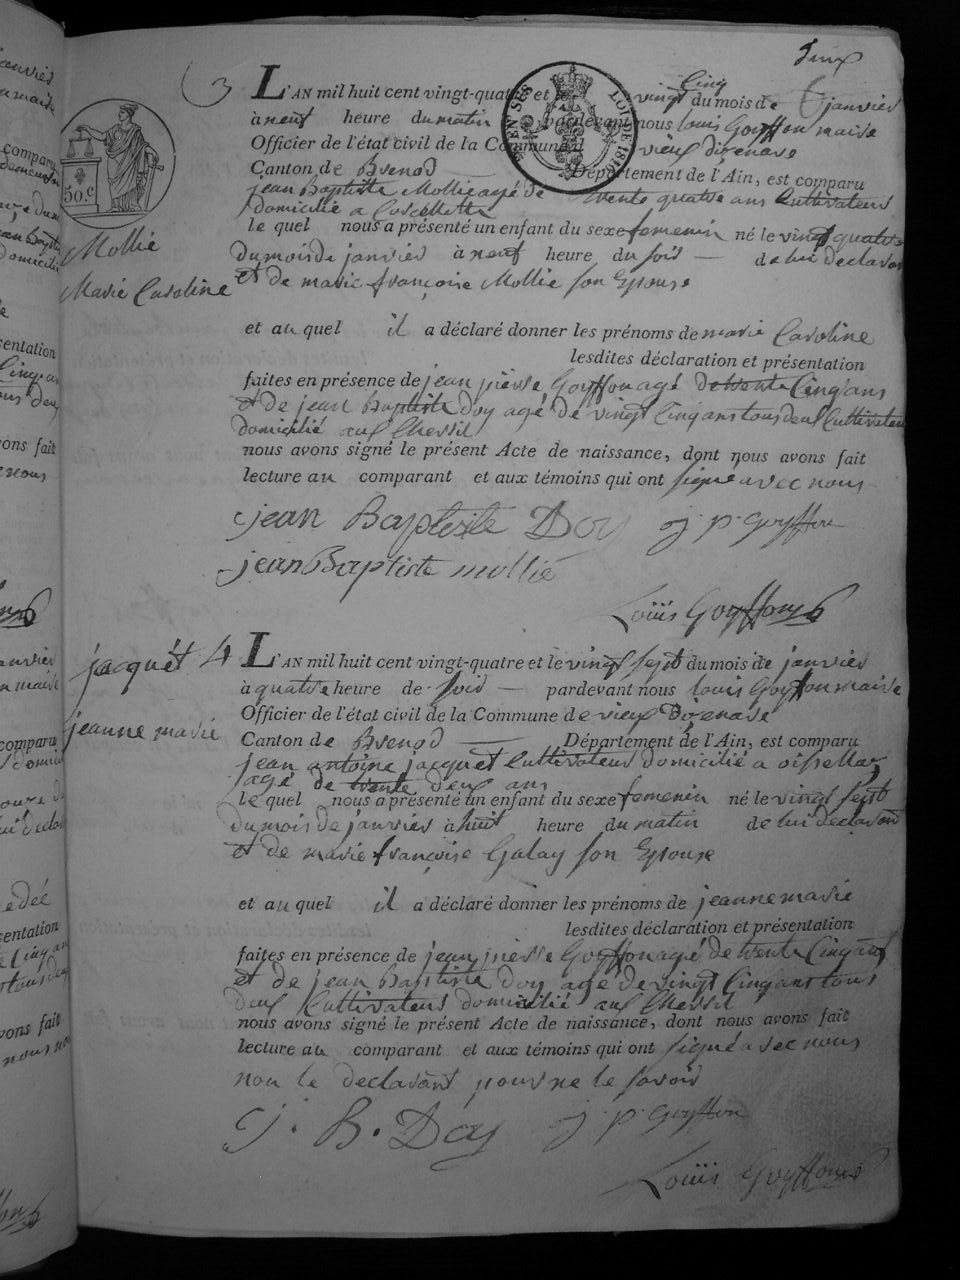 Deux
3
L'AN mil huit cent vingt-quatre et le vingt Cinq du mois de janvier
à neuf heure du matin pardevant nous louis Goyffon maire
Officier de l'état civil de la Commune d vieux dizenave
Canton de Brenod Département de l'Ain, est comparu
jean Baptiste Mollie agé de trente quatre ans Cultivateur
domicilié a
le quel nous a présenté un enfant du sexe femenin né le vingt quatre
du mois de janvier à neuf heure du soir — de lui declarant
et de marie françoise Mollie son Epouse
et au quel il a déclaré donner les prénoms de marie Caroline
lesdites déclaration et présentation
faites en présence de jean pierre Goyffon agé de trente Cinq ans
et de jean Baptiste Doy agé de vingt Cinq ans tous deux Cultivateur
domicilié aux
nous avons signé le présent Acte de naissance, dont nous avons fait
lecture au comparant et aux témoins qui ont signé avec nous
jean Baptiste Doy j. p. Goyffon
jean Baptiste mollié
Louis Goyffon
50.c
Mollié
Marie Caroline
jacquet 4
jeanne marie
L'AN mil huit cent vingt-quatre et le vingt sept du mois de janvier
à quatre heure de soir — pardevant nous louis Goyffon maire
Officier de l'état civil de la Commune de vieux Dizenave
Canton de Brenod — Département de l'Ain, est comparu
jean antoine jacquet Cultivateur domicilié a
agé de trente deux ans
le quel nous a présenté un enfant du sexe femenin né le vingt sept
du mois de janvier à huit heure du matin de lui declarant
et de marie françoise Galay son Epouse
et au quel il a déclaré donner les prénoms de jeanne marie
lesdites déclaration et présentation
faites en présence de jean pierre Goyffon agé de trente Cinq ans
et de jean Baptiste Doy agé de vingt Cinq ans tous
deux Cultivateurs domicilié aux
nous avons signé le présent Acte de naissance, dont nous avons fait
lecture au comparant et aux témoins qui ont signé avec nous
non le declarant pour ne le savoir
J. B. Doy j. p. Goyffon
Louis Goyffon